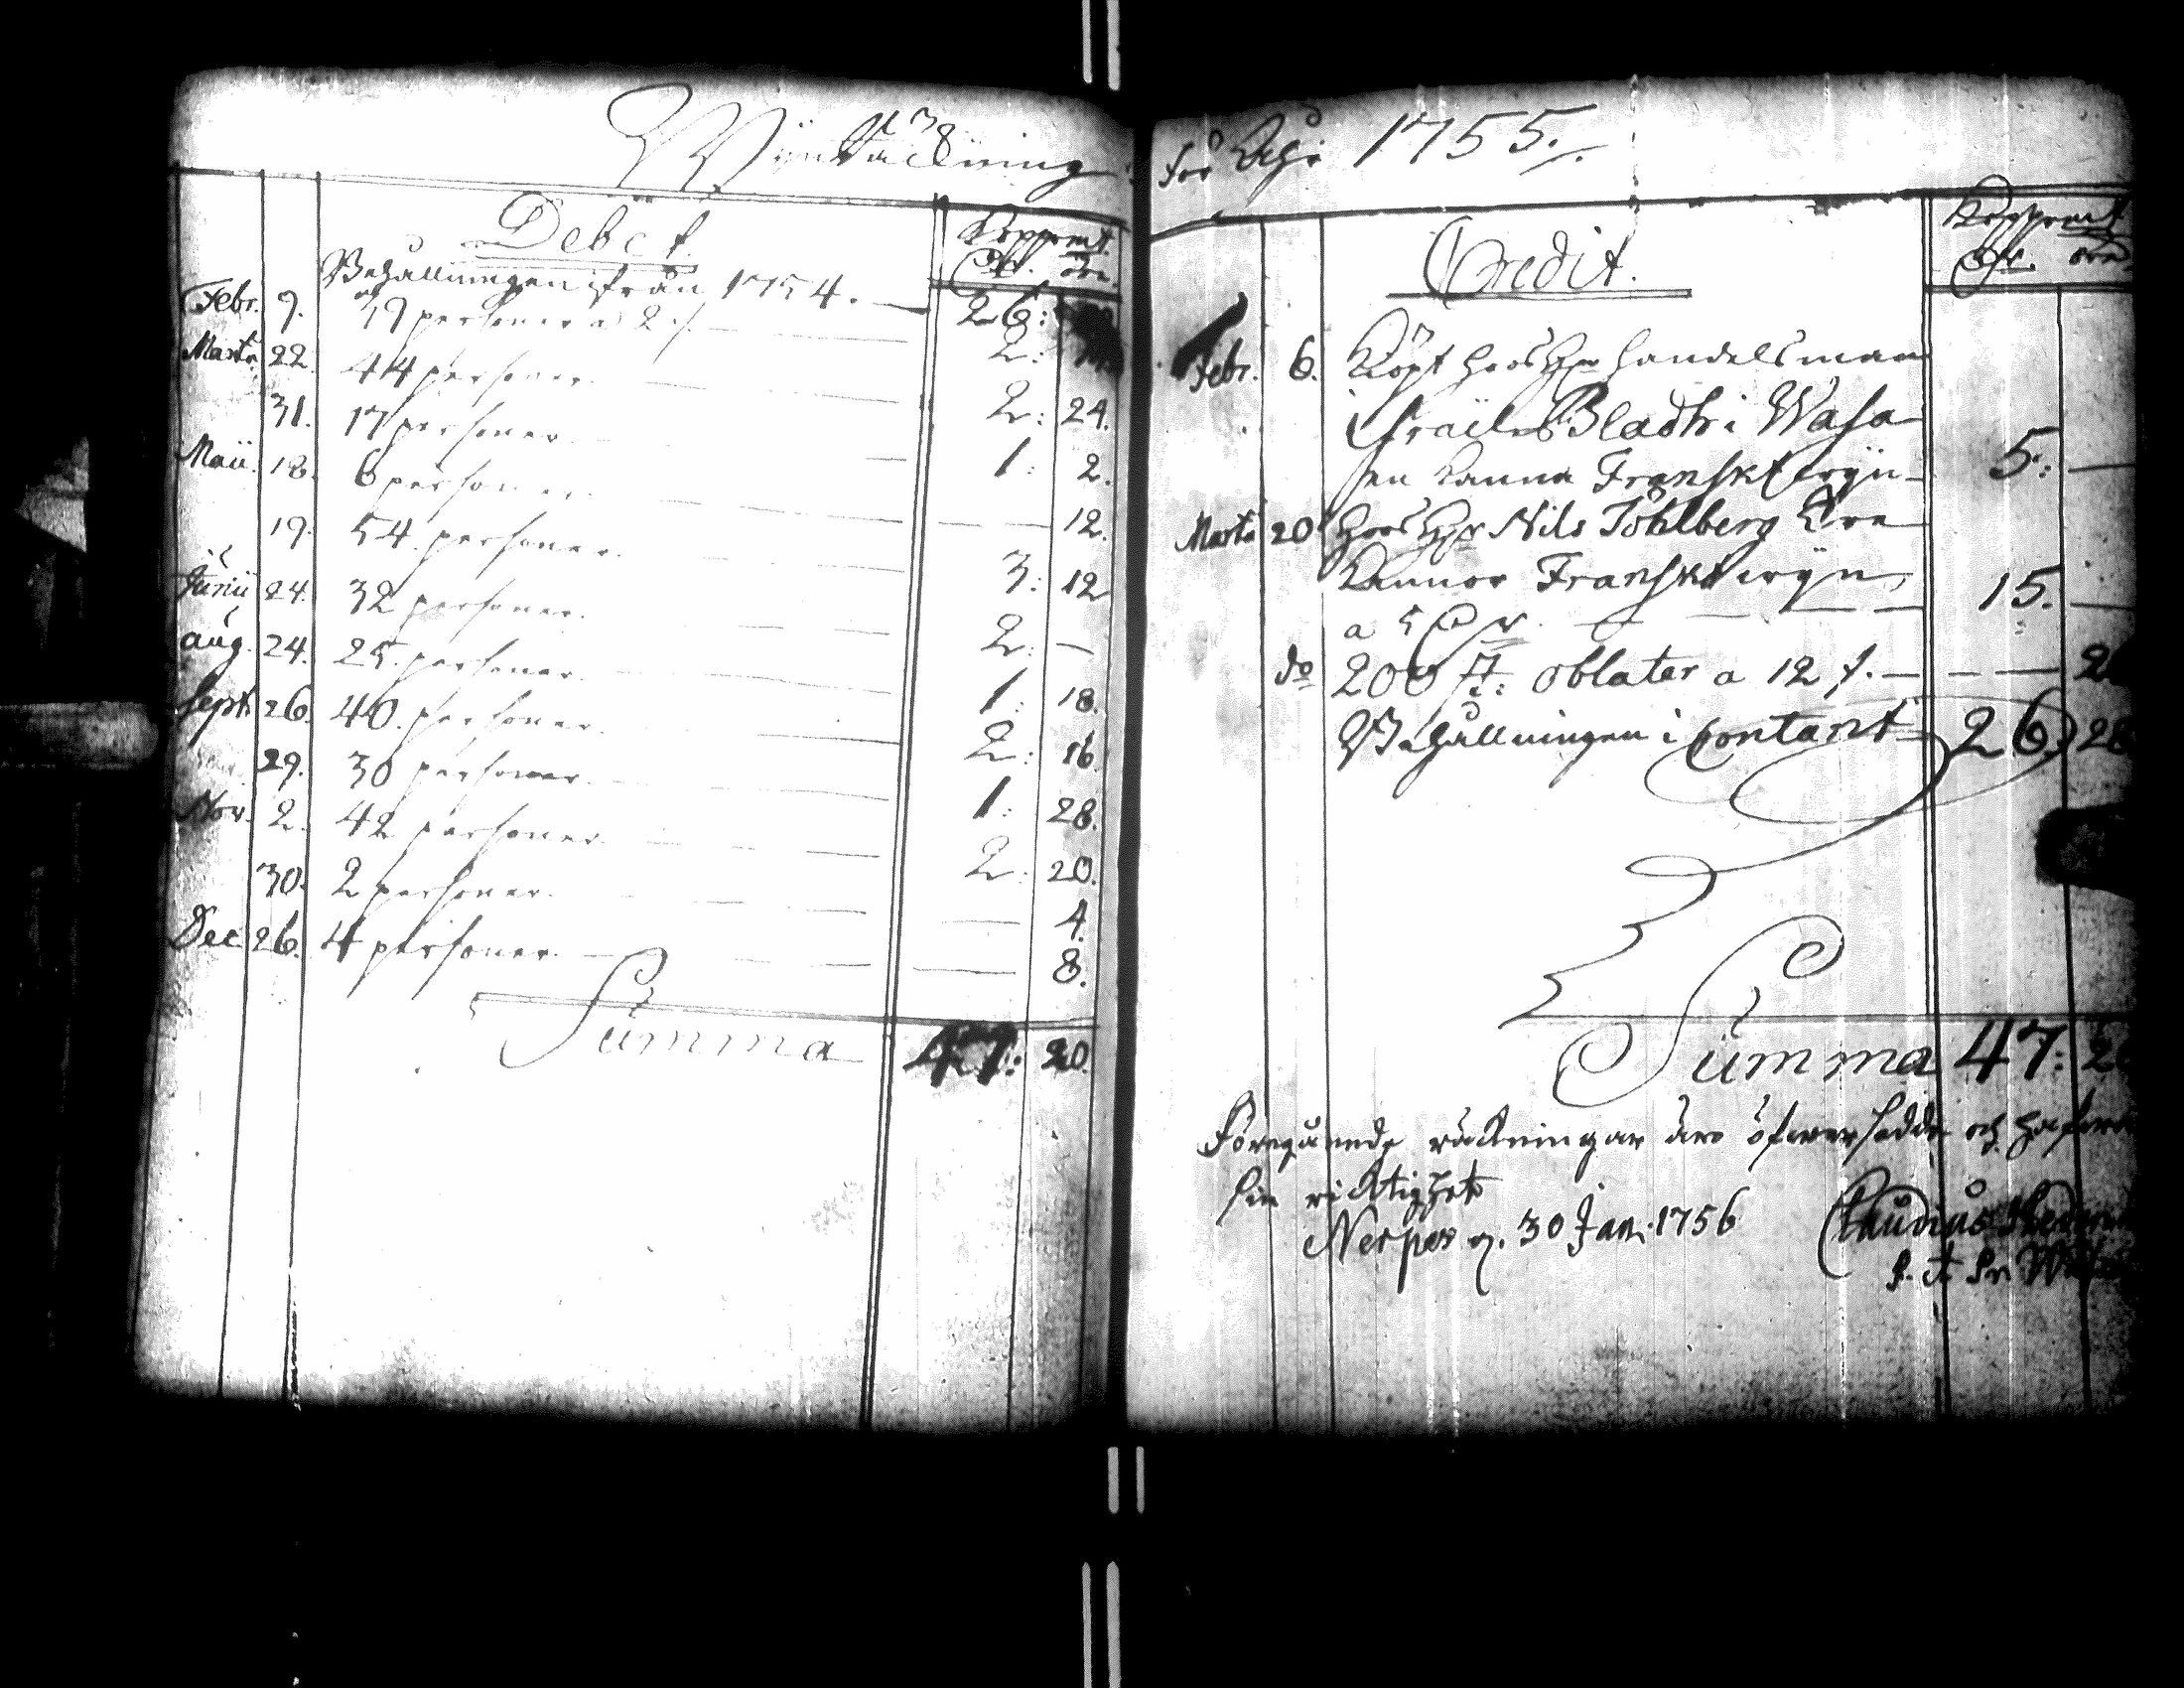 Wijnräckning
Debet
Koppmt.
Dlr. öre
Behållningen ifrån 1754. — 26:
Febr. 9. 39 personer a 2 :/. — 2:
Martii 22. 44 personer. — 2: 24.
31. 17 personer. — 1: 2.
Maii 18. 6 personer. — 12.
19. 54. personer. — 3: 12
Junii 24. 32 personer. — 2: —
aug. 24. 25. personer. — 1: 18.
Sept. 26. 40. personer. — 2: 16.
29. 30 personer. — 1: 28.
Nov. 2. 42 personer. — 2: 20.
30. 2 personer. — 4.
Dec 26. 4 personer. — 8.
Summa 47: 20.
för 1755.
Credit.
Koppmt
Dlr. öre
Febr. 6. Köpt hoos Hr handelsman
Israel Bladh i Wasa
en kanna Franskt wijn 5: —
Martii 20 hoos Hr Nils Tohlberg tre
kannor Franskt wijn,
a 5 Dlr. — 15. —
do 200 st: oblater a 12 :/. —
Behållningen i Contant 26
Summa 47:
Föregående räkningar äro öfwersedde och hafwa
sin richtighet
Nerpes d. 30 Jan: 1756 Claudius